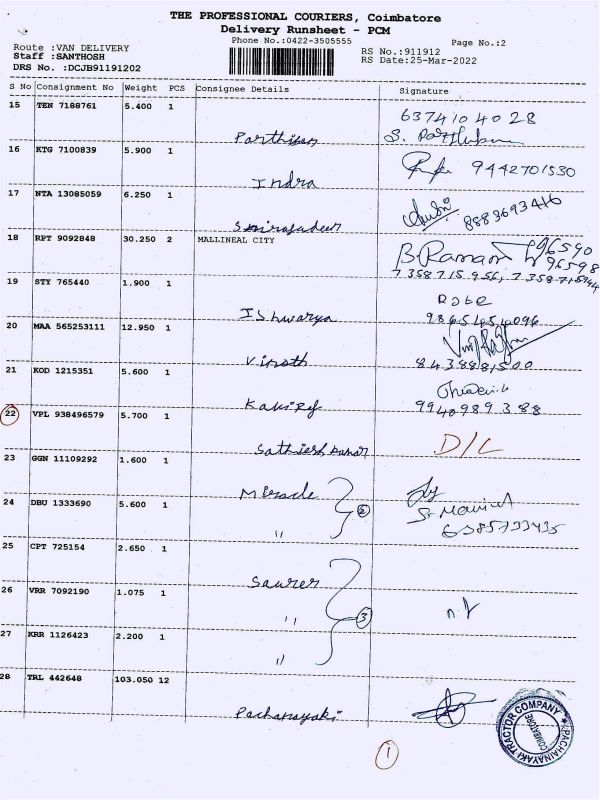 THE PROFESSIONAL COURIERS, Coimbatore
Delivery Runsheet - PCM
Phone No.:0422-3505555
Page No.:2
Route :VAN DELIVERY
Staff :SANTHOSH
DRS No. :DCJB91191202
RS No.:911912
RS Date:25-Mar-2022
S No Consignment No Weight PCS Consignee Details Signature
15 TEN 7188761 5.400 1
6374104028
Parthiban
16 KTG 7100839 5.900 1
9442701530
Indra
17 NTA 13085059 6.250 1
18 RPT 9092848 30.250 2 MALLINEAL CITY
B. Raman
96590
96598
19 STY 765440 1.900 1
Ishwarya
20 MAA 565253111 12.950 1
Vinoth
21 KOD 1215351 5.600 1
9940989388
22 VPL 938496579 5.700 1
D/L
23 GGN 11109292 1.600 1
Miracle
24 DBU 1333690 5.600 1
"
25 CPT 725154 2.650 1
Saurer
26 VRR 7092190 1.075 1
" 3
27 KRR 1126423 2.200 1
"
28 TRL 442648 103.050 12
Pachanayaki
PACHAINAYAKI TRACTOR COMPANY
COIMBATORE
1